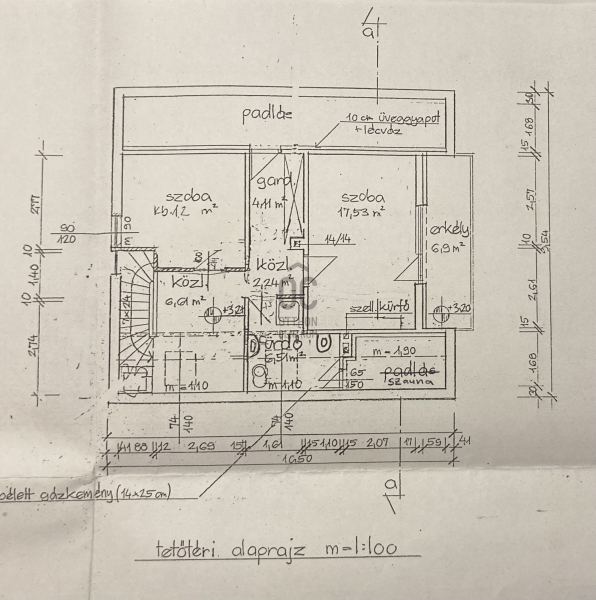 a
padlás
10 cm üveggyapot
+lécváz
30
1.68
15
szoba
kb.12 m²
gard.
4,11 m²
szoba
17,53 m²
2,77
2,57
90
120
m 90
erkély
6,9 m²
14/14
10
10
közl.
6,61 m²
közl.
2,24 m²
1,40
10
2,61
+3,21
+3,20
szell. kürtő
15
fürdő
m=1,90
2,74
m=1,10
m=1,10
65
150
padlás
szauna
1,68
74
140
74
140
41 88 12 2,69 15 1,61 15 1,10 15 2,07 17 1,59 41
10,50
bélelt gázkémény (14×25 cm)
a
tetőtéri alaprajz m=1:100